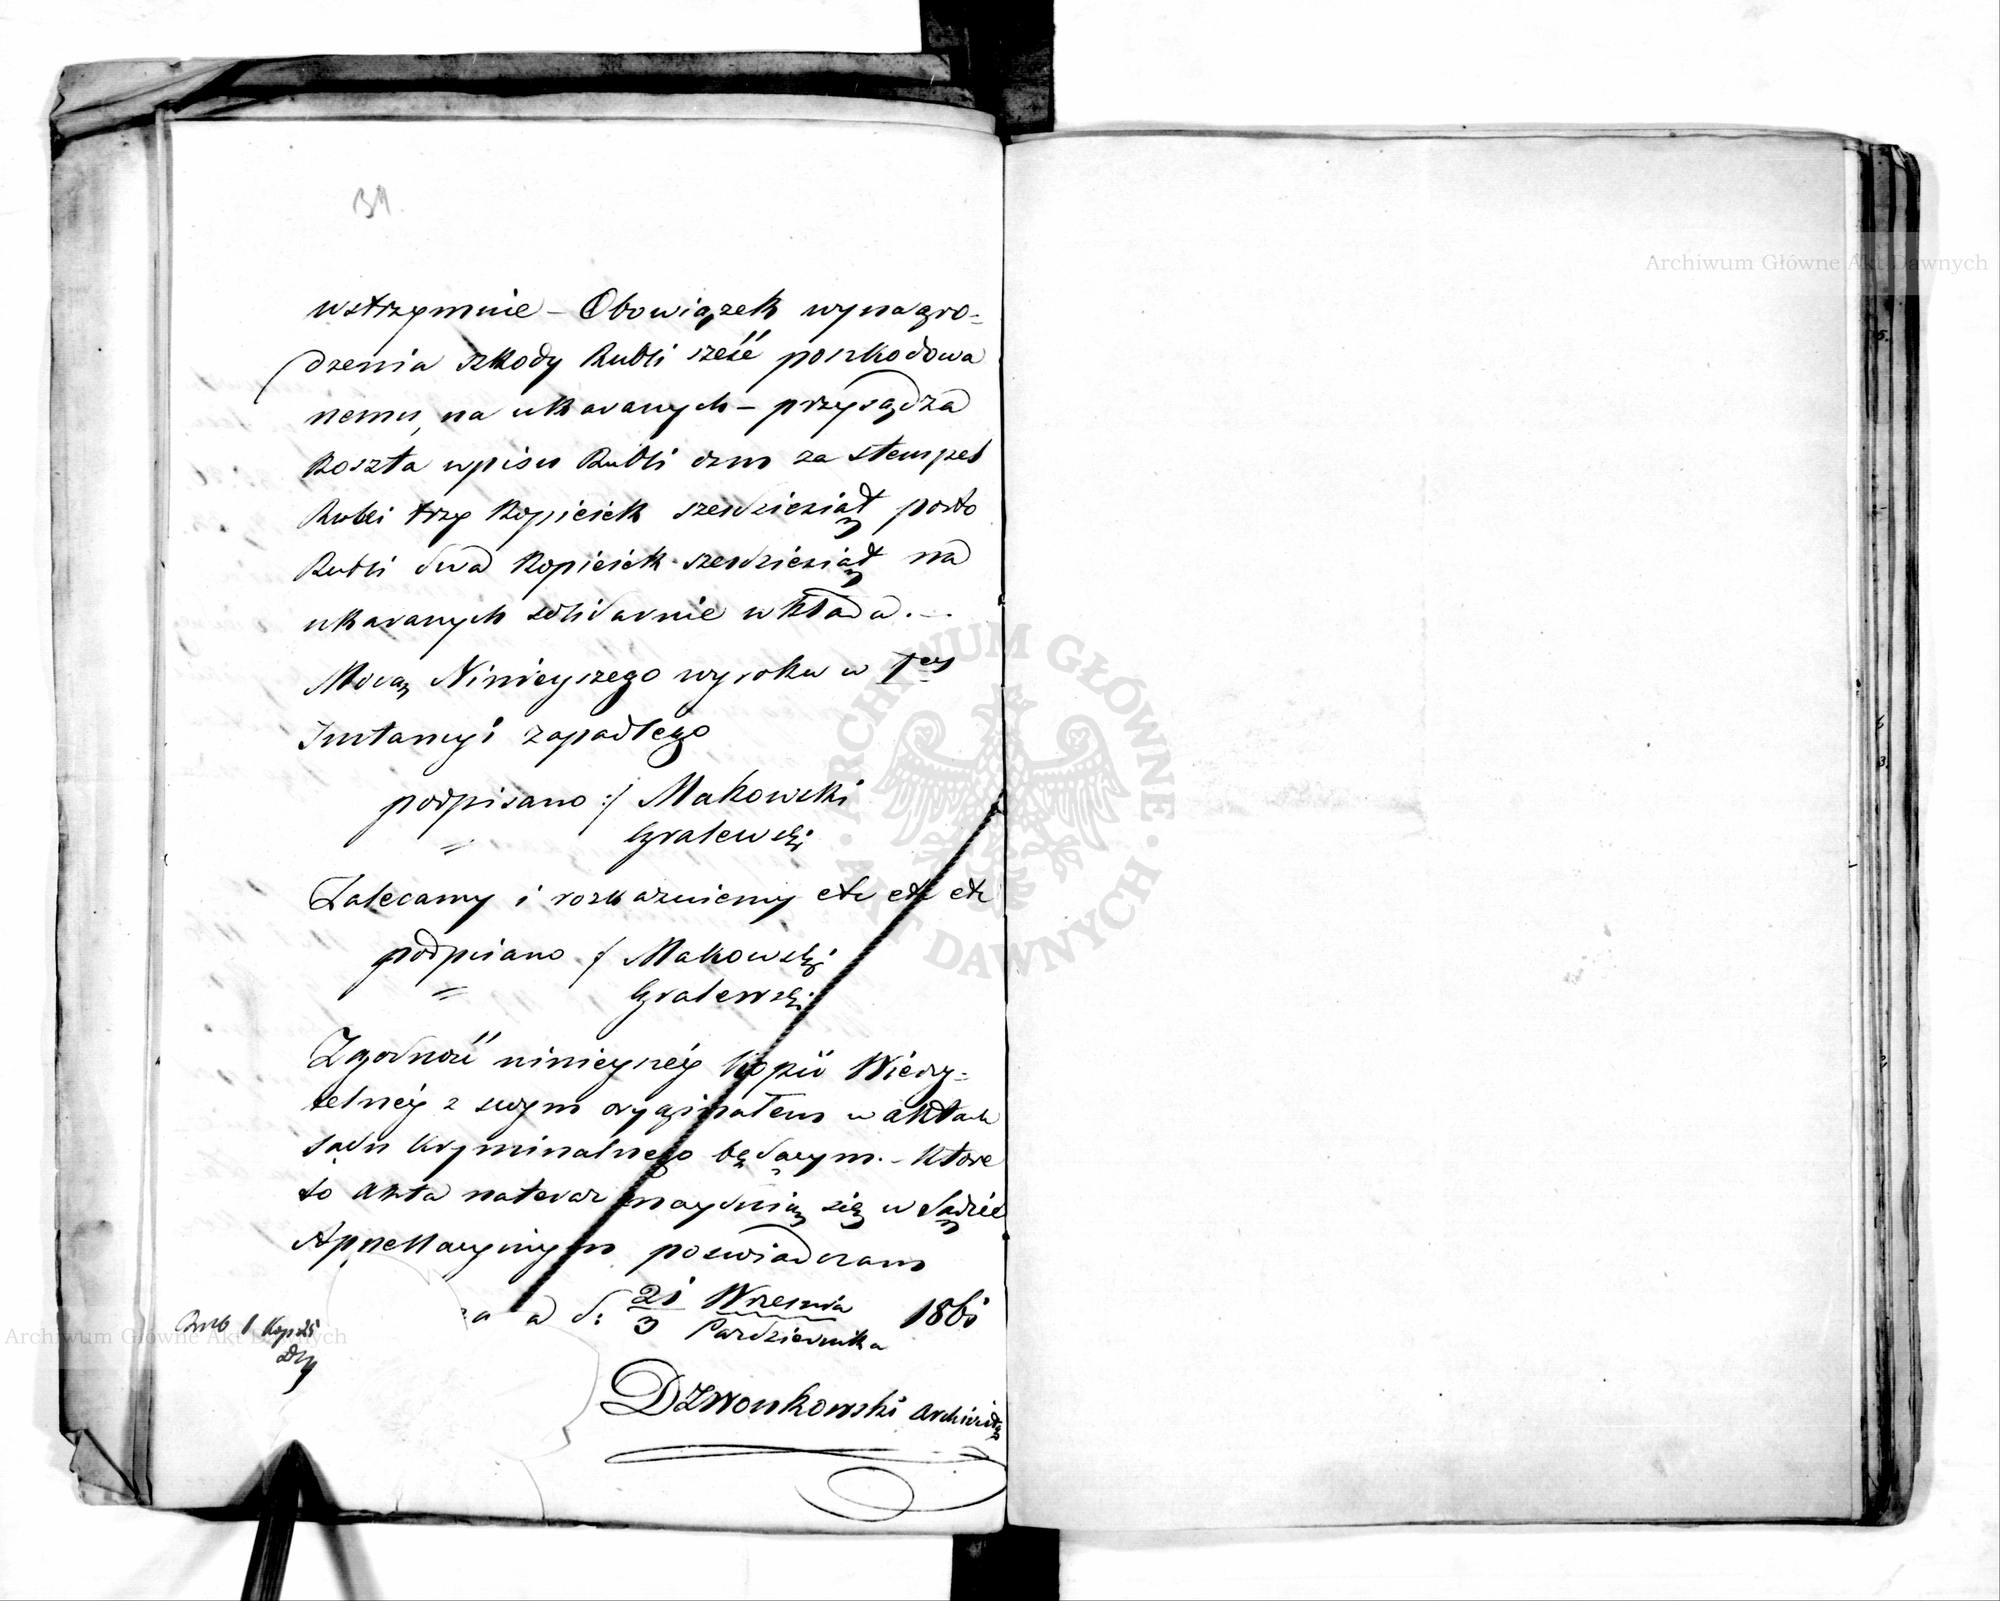 wstrzymuie – Obowiązek wynagro=
dzenia szkody Rubli sześć poszkodowa
nemu, na ukaranych – przysądza
koszta wpisu Rubli ośm za stempel
Rubli trzy kopieiek sześdziesiąt porto
Rubli dwa kopieiek sześdziesiąt na
ukaranych solidarnie wkłada. –
Mocą Ninieyszego wyroku w 1ey
Instancyi zapadłego
podpisano :/ Makowski
" Gralewski
Zalecamy i rozkazuiemy etc etc etc
podpisano / Makowski
" Gralewski
Zgodność ninieyszéy kopii Wiery=
telnéy z swym oryginałem w aktach
Sądu Kryminalnego będącym. – które
to akta nateraz znayduią się w Sądzie
Appellacyinym poświadczam
d: 21/3 Września/Października 1861
Rub 1 Kop 25
Dzwonkowski Archiwista
Archiwum Główne Akt Dawnych
Archiwum Główne Akt Dawnych
ARCHIWUM GŁÓWNE AKT DAWNYCH